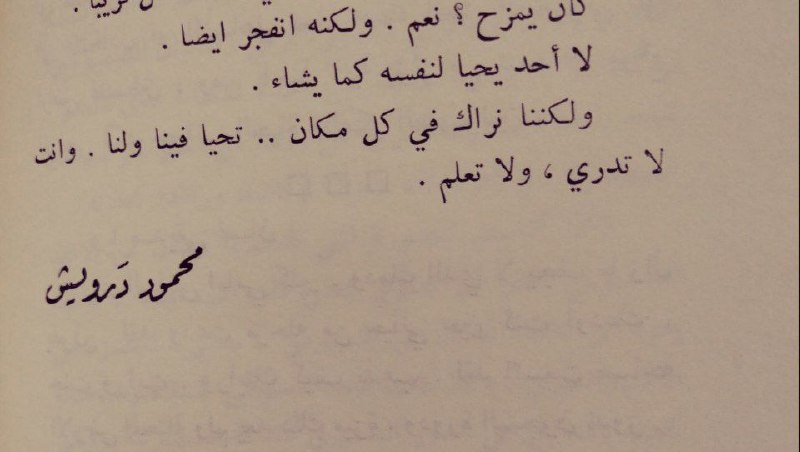 كان يمزح ؟ نعم . ولكنه انفجر ايضا .
لا أحد يحيا لنفسه كما يشاء .
ولكننا نراك في كل مكان .. تحيا فينا ولنا . وانت
لا تدري ، ولا تعلم .
محمود دَرويش